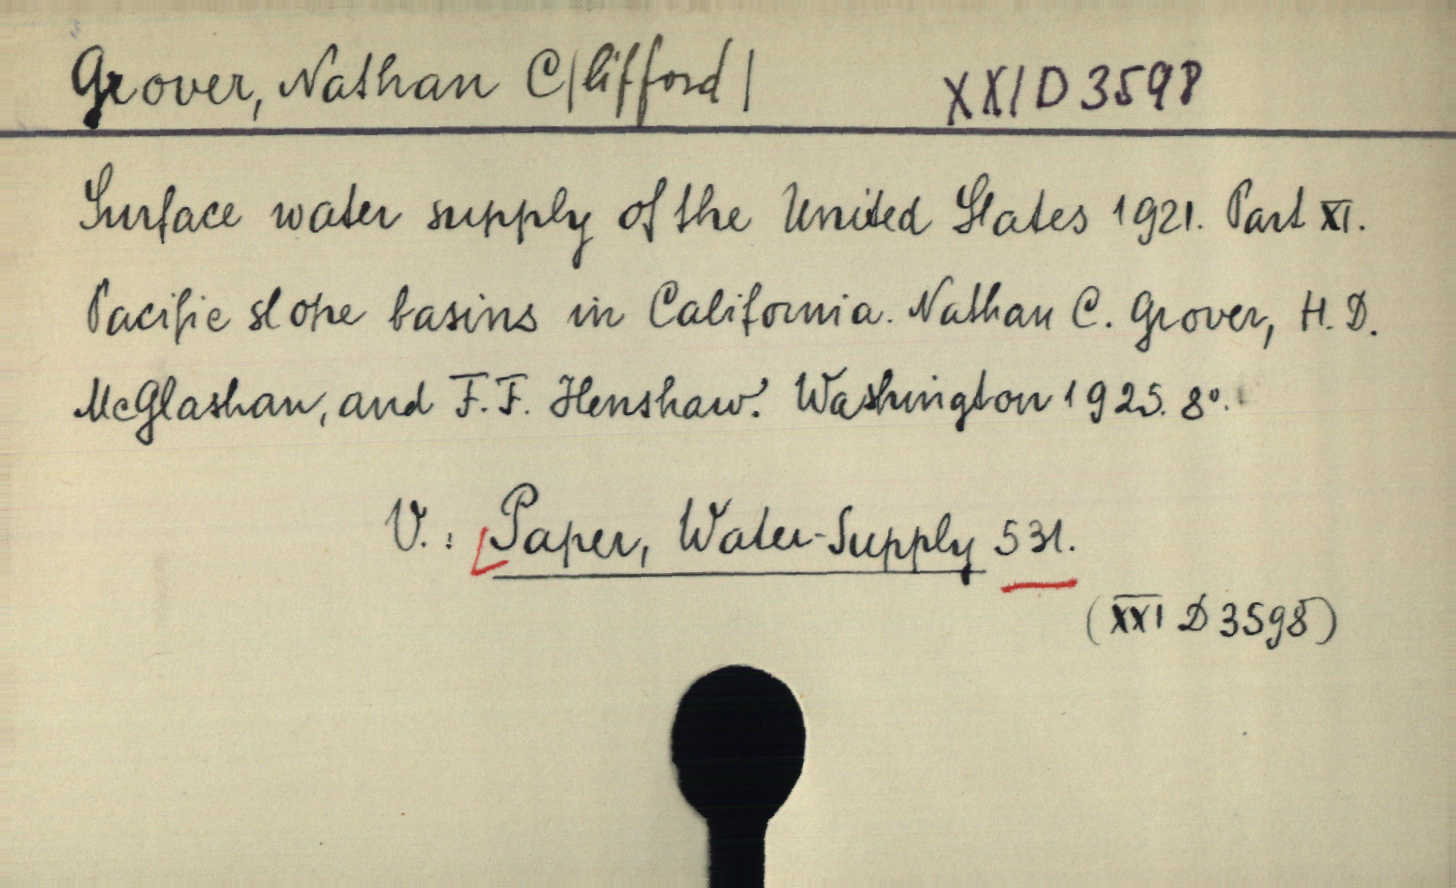 Grover, Nathan C/lifford/ XXI D 3598
Surface water supply of the United States 1921. Part XI.
Pacific slope basins in California. Nathan C. Grover, H. D.
McGlashan, and F. F. Henshaw. Washington 1925. 8°.
V.: Paper, Water-Supply 531.
(XXI D 3598)